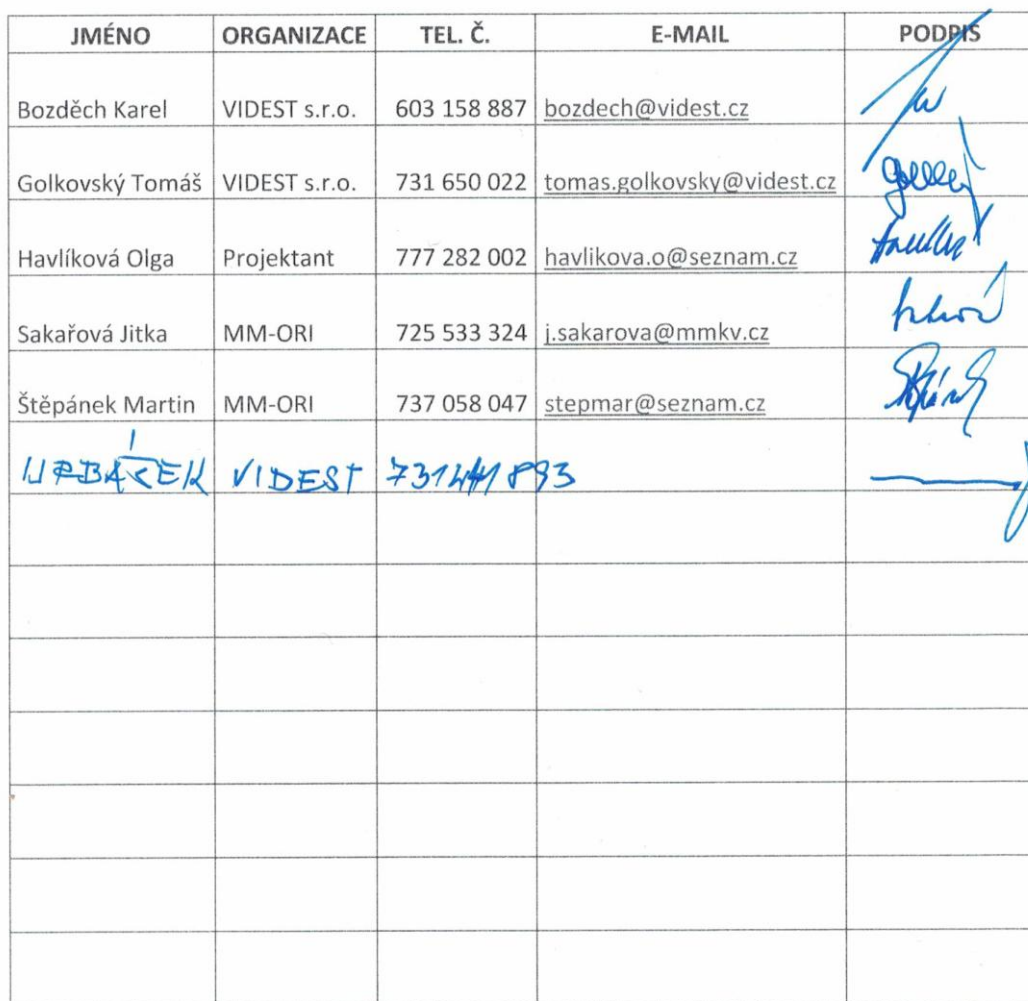 JMÉNO ORGANIZACE TEL. Č. E-MAIL PODPIS
Bozděch Karel VIDEST s.r.o. 603 158 887 bozdech@videst.cz
Golkovský Tomáš VIDEST s.r.o. 731 650 022 tomas.golkovsky@videst.cz
Havlíková Olga Projektant 777 282 002 havlikova.o@seznam.cz
Sakařová Jitka MM-ORI 725 533 324 j.sakarova@mmkv.cz
Štěpánek Martin MM-ORI 737 058 047 stepmar@seznam.cz
VIDEST